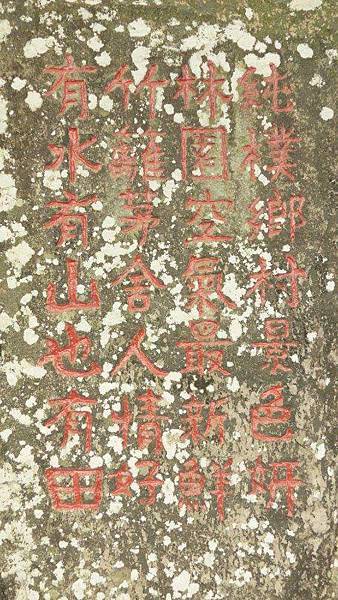 純樸鄉村景色妍
林園空氣最新鮮
竹籬茅舍人情好
有水有山也有田